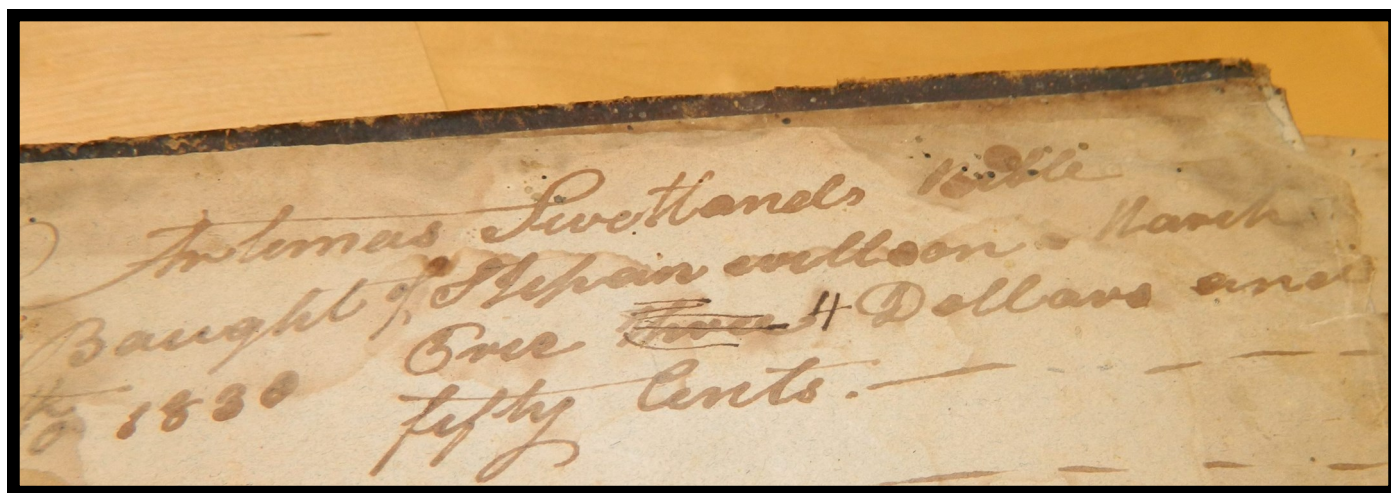 Artemas Swetlands Bible
Baught of Stepan willson March
th 1830 Price 4 Dollars and
fifty Cents.